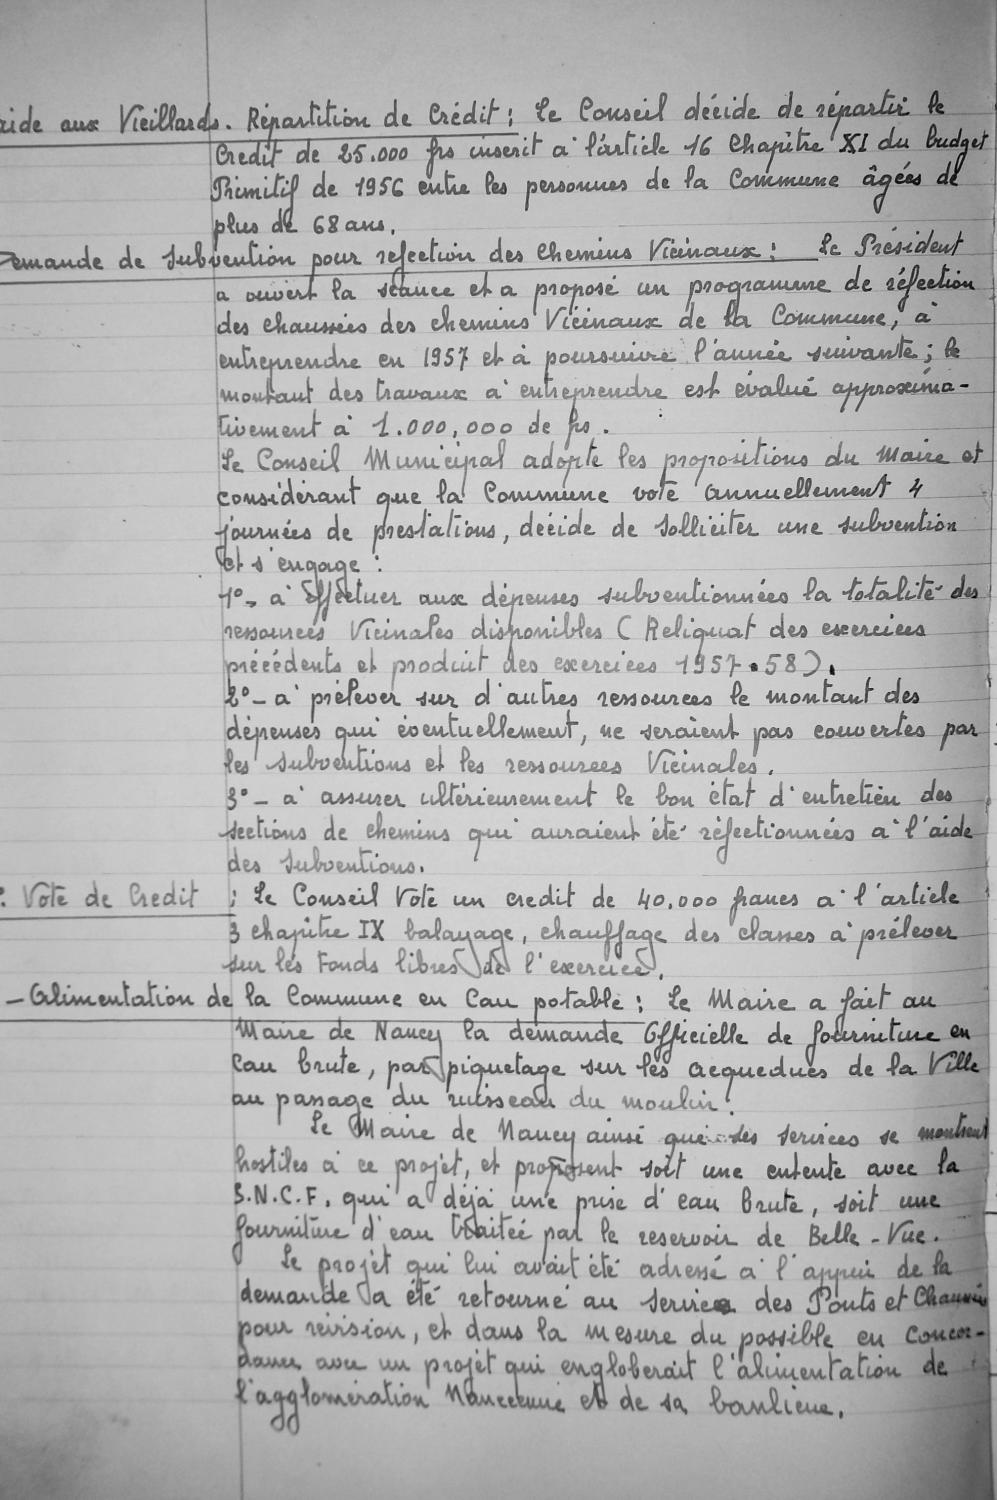 aide aux Vieillards. Répartition de Crédit : Le Conseil décide de répartir le
Credit de 25.000 frs inscrit à l'article 16 Chapitre XI du budget
Primitif de 1956 entre les personnes de la Commune âgées de
plus de 68 ans.
Demande de Subvention pour refection des Chemins Vicinaux : Le Président
a ouvert la séance et a proposé un programme de réfection
des chaussées des chemins Vicinaux de la Commune, à
entreprendre en 1957 et à poursuivre l'année suivante ; le
montant des travaux à entreprendre est évalué approxima-
tivement à 1.000,000 de frs.
Le Conseil Municipal adopte les propositions du Maire et
considérant que la Commune vote annuellement 4
journées de prestations, décide de solliciter une subvention
et s'engage :
1°- à effectuer aux dépenses subventionnées la totalité des
ressources Vicinales disponibles ( Reliquat des exercices
précédents et produit des exercices 1957.58 ).
2°- à prélever sur d'autres ressources le montant des
dépenses qui éventuellement, ne seraient pas couvertes par
les subventions et les ressources Vicinales.
3°- à assurer ultérieurement le bon état d'entretien des
sections de chemins qui auraient été réfectionnées à l'aide
des Subventions.
: Vote de Credit : Le Conseil Vote un credit de 40.000 francs à l'article
3 chapitre IX balayage, chauffage des classes à prélever
sur les Fonds libres de l'exercice.
- Alimentation de la Commune en Eau potable : Le Maire a fait au
Maire de Nancy la demande Officielle de fourniture en
Eau brute, par piquetage sur les acqueducs de la Ville
au passage du ruisseau du moulin.
Le Maire de Nancy ainsi que ses services se montrent
hostiles à ce projet, et proposent soit une entente avec la
S.N.C.F. qui a déjà une prise d'eau brute, soit une
fourniture d'eau traitée par le reservoir de Belle-Vue.
Le projet qui lui avait été adressé à l'appui de la
demande a été retourné au Service des Ponts et Chaussées
pour révision, et dans la mesure du possible en Concor-
dance avec un projet qui engloberait l'alimentation de
l'agglomération Nanceenne et de sa banlieue.